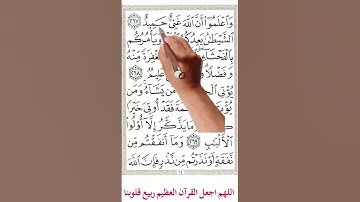 وَاعْلَمُوا أَنَّ اللَّهَ غَنِيٌّ حَمِيدٌ ٢٦٧
الشَّيْطَانُ يَعِدُكُمُ وَيَأْمُرُكُم
بِالْفَحْشَاءِ مَغْفِرَةً مِنْهُ
وَفَضْلًا عَلِيمٌ ٢٦٨
يُؤْتِي مَن يَشَاءُ وَمَن
فَقَدْ أُوتِيَ خَيْرًا
وَمَا يَذَّكَّرُ إِلَّا أُولُوا
الْأَلْبَابِ ٢٦٩ وَمَا أَنفَقْتُم مِّن
نَّفَقَةٍ أَوْ نَذَرْتُم مِّن نَّذْرٍ فَإِنَّ اللَّهَ
اللهم اجعل القرآن العظيم ربيع قلوبنا